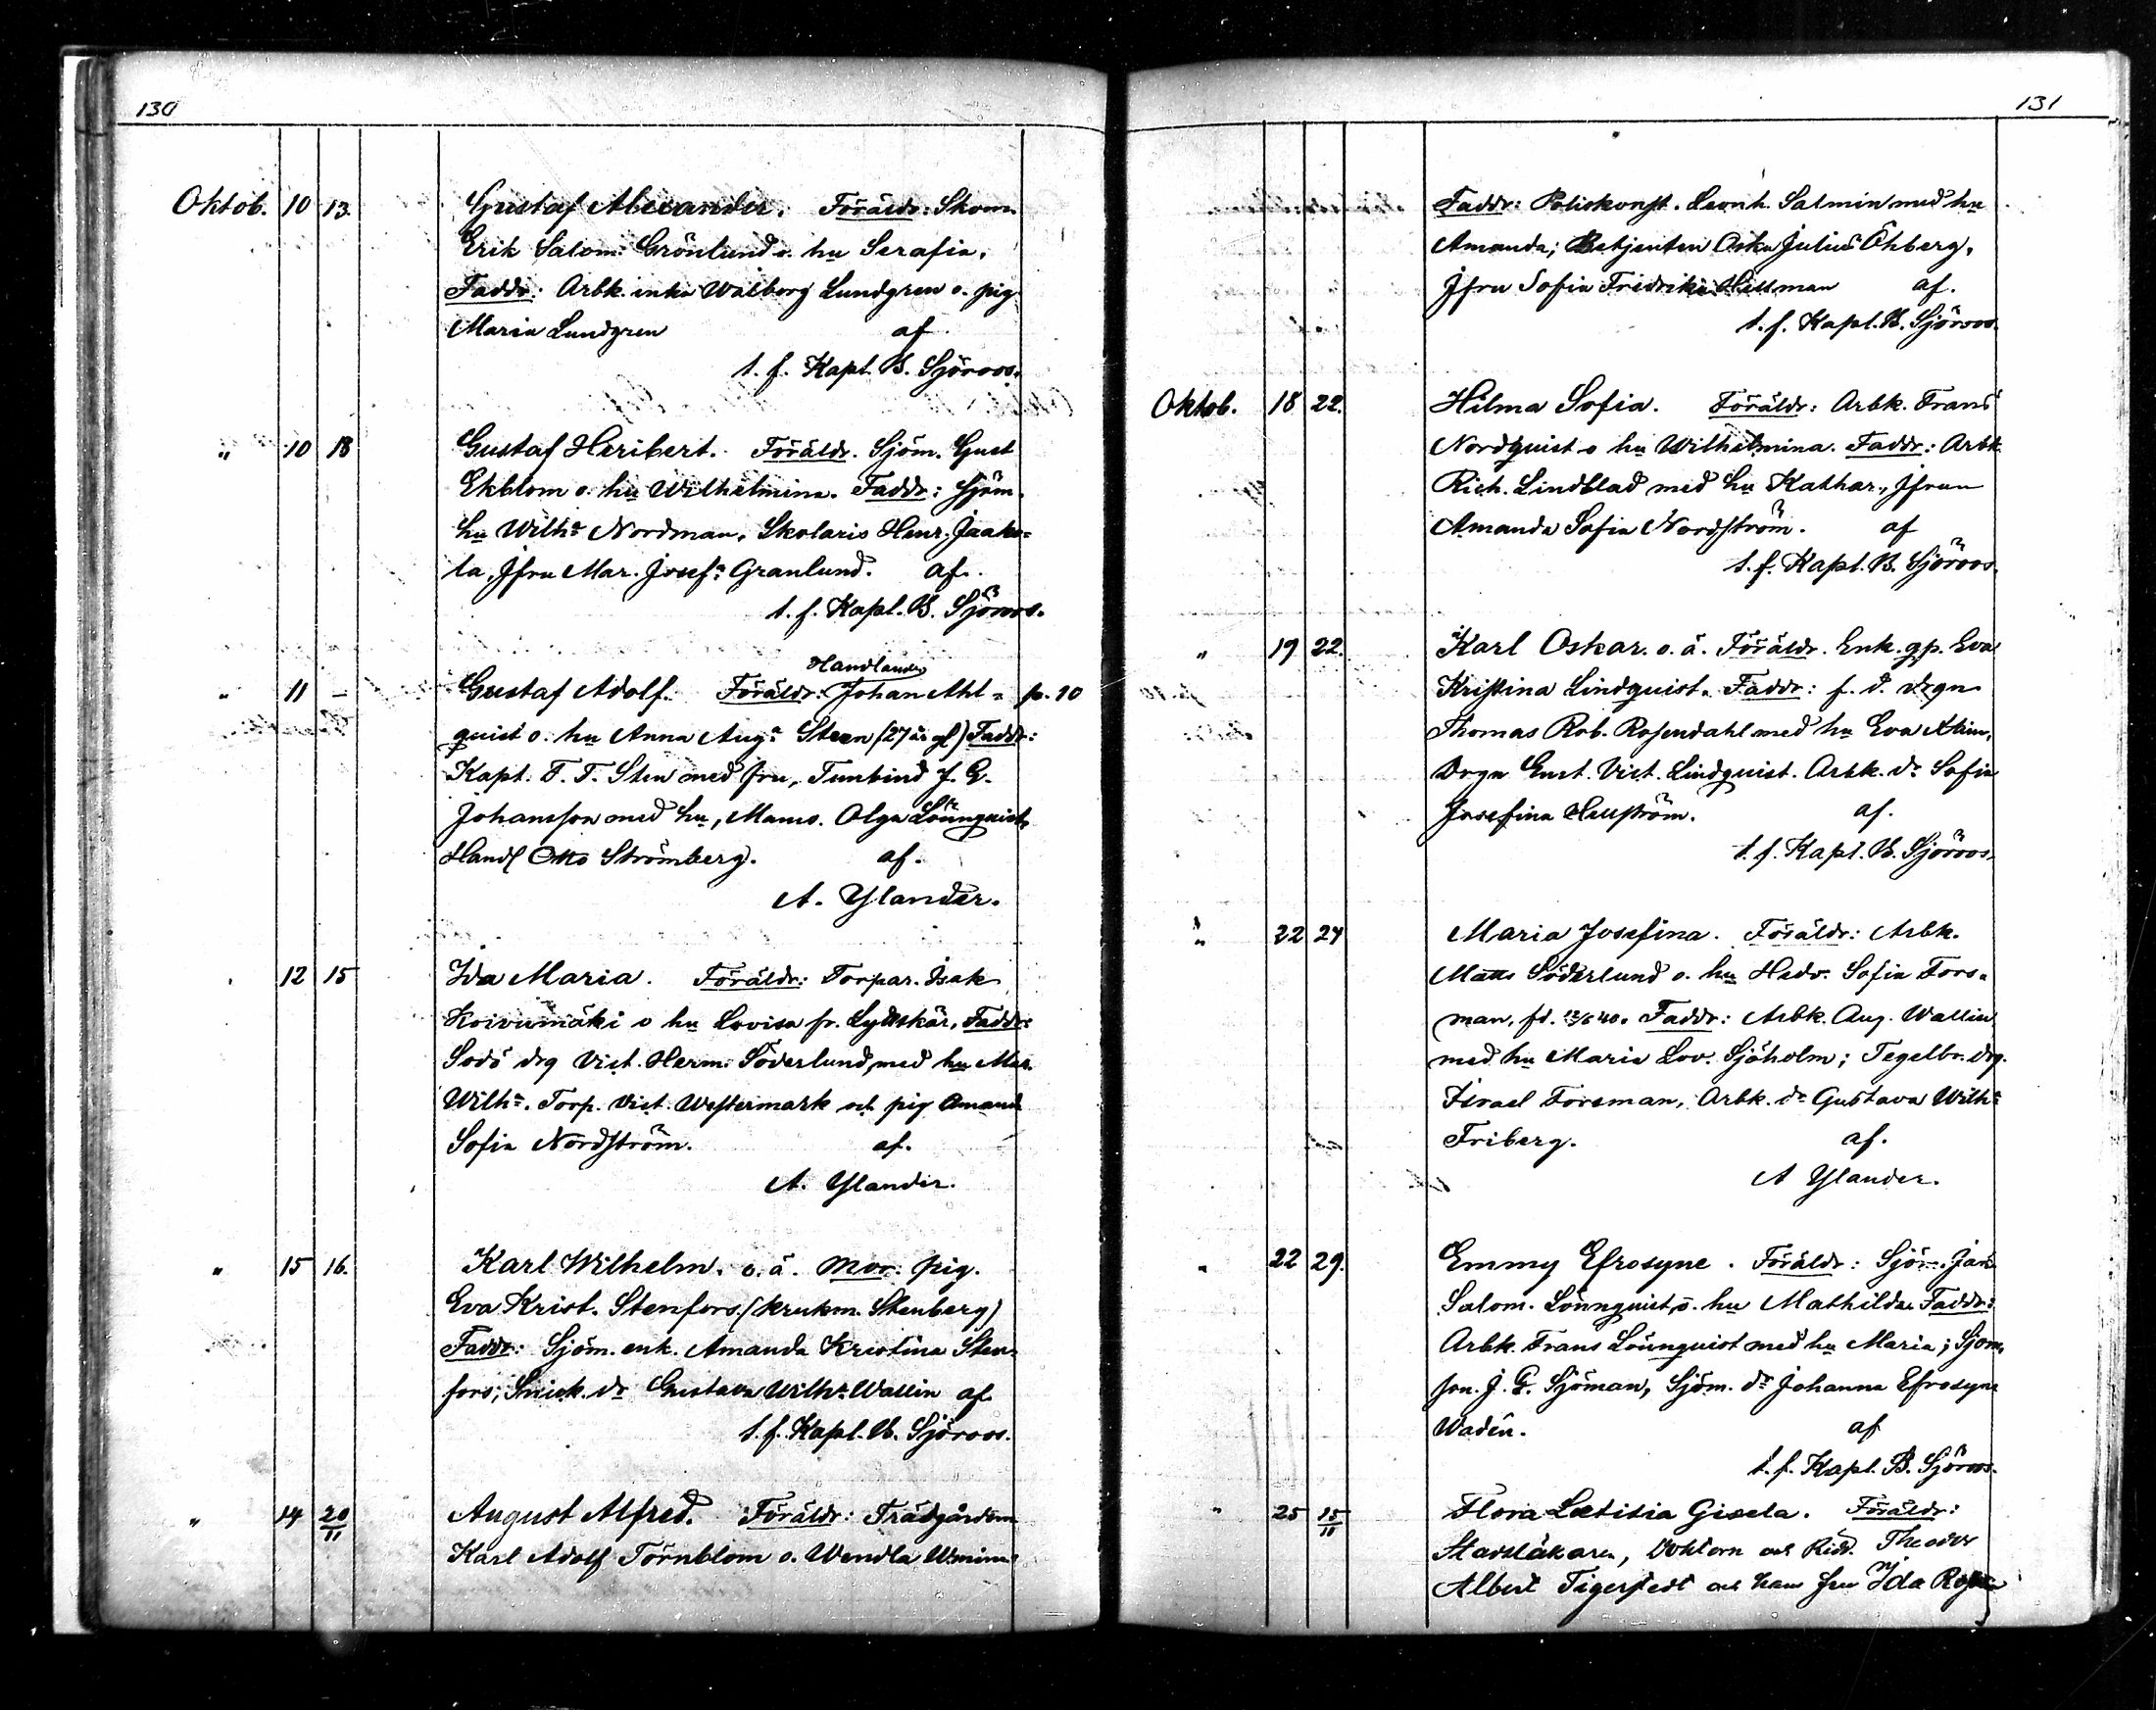 130
Oktob. 10 13. Gustaf Alexander. Föräldr: Skom.
Erik Salom. Grönlund o. hu Serafia.
Faddr: Arbk. inka Walborg Lundgren o. pig
Maria Lundgren af
t. f. Kapl. B. Sjöroos.
" 10 18 Gustaf Heribert. Föräldr. Sjöm. Gust
Ekblom o. hu Wilhelmina. Faddr: Sjöm.
hu Wilha Nordman, Skolaris Henr. Jaako-
la, Jfru Mar. Josefa Granlund. af.
t. f. Kapl. B. Sjöroos.
Handland
" 11 – Gustaf Adolf. Föräldr: Johan Ahl- p. 10
quist o. hu Anna Auga Steen (27 år gl) Faddr:
Kapt. F. F. Sten med fru, Tunbind J. G.
Johansson med hu, Mams. Olga Lönnquist,
Handl Otto Strömberg. af.
A. Ylander.
" 12 15 Ida Maria. Föräldr: Torpar. Isak
Koivumäki o hu Lovisa fr. Lyttskär, Faddr:
Sodö drg Vict. Herm. Söderlund med hu Mar.
Wilha. Torp. Vict. Westermark och pig Amand
Sofia Nordström. af.
A. Ylander.
" 15 16. Karl Wilhelm. o. ä. Mor: pig.
Eva Krist. Stenfors. (krukm. Stenberg)
Faddr: Sjöm. enk. Amanda Kristina Sten-
fors; Snick. dr Gustava Wilha Wallin af.
t. f. Kapl. B. Sjöroos.
" 14 20/11 August Alfred. Föräldr: Trädgårdsm
Karl Adolf Törnblom o. Wendla Wmina
131
Faddr: Poliskonst. Leonh. Salmin med hu
Amanda; Betjenten Oskar Julius Öhberg,
Jfru Sofia Fridrika Hellman af.
t. f. Kapl. B. Sjöroos.
Oktob. 18 22. Hilma Sofia. Föräldr: Arbk. Frans
Nordquist o hu Wilhelmina. Faddr: Arbk.
Rich. Lindblad med hu Kathar., Jfrun
Amanda Sofia Nordström. af
t. f. Kapl. B. Sjöroos.
" 19 22. Karl Oskar. o. ä. Föräldr. Enk. gp. Eva
Kristina Lindquist. Faddr: f. d. drgn
Thomas Rob. Rosendahl med hu Eva
Drgn Gust. Vict. Lindquist. Arbk. dr Sofia
Josefina Hellström. af.
t. f. Kapl. B. Sjöroos.
" 22 24 Maria Josefina. Föräldr: Arbk.
Matts Söderlund o. hu Hedv. Sofia Fors-
man, fd. 12/6 40. Faddr: Arbk. Aug. Wallin
med hu Maria Lov. Sjöholm; Tegelbr. drg.
Israel Forsman, Arbk. dr Gustava Wilha
Friberg. af.
A Ylander.
" 22 29. Emmy Efrosyne. Föräldr: Sjöm.
Salom. Lönnquist o. hu Mathilda. Faddr:
Arbk. Frans Lönnquist med hu Maria; Sjöm.
son. J. G. Sjöman, Sjöm. dr Johanna Efrosyne
Wadén. af
t. f. Kapl. B. Sjöroos.
" 25 15/11 Flora Lætitia Gisela. Föräldr:
Stadsläkaren, Doktorn och Ridd. Theodor
Albert Tigerstedt och hans fru Ida